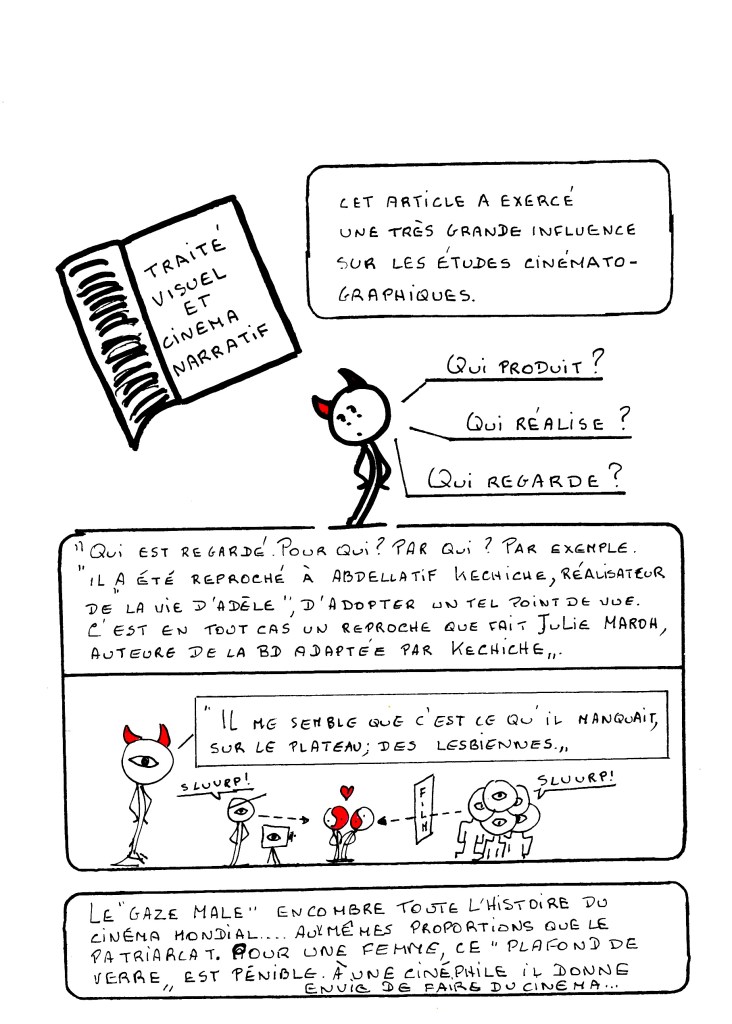 TRAITÉ
VISUEL
ET
CINEMA
NARRATIF
CET ARTICLE A EXERCÉ
UNE TRÈS GRANDE INFLUENCE
SUR LES ÉTUDES CINÉMATO-
GRAPHIQUES.
QUI PRODUIT ?
QUI RÉALISE ?
QUI REGARDE ?
"QUI EST REGARDÉ. POUR QUI ? PAR QUI ? PAR EXEMPLE.
"IL A ÉTÉ REPROCHÉ À ABDELLATIF KECHICHE, RÉALISATEUR
DE "LA VIE D'ADÈLE", D'ADOPTER UN TEL POINT DE VUE.
C'EST EN TOUT CAS UN REPROCHE QUE FAIT JULIE MAROH,
AUTEURE DE LA BD ADAPTÉE PAR KECHICHE„.
"IL ME SEMBLE QUE C'EST CE QU'IL MANQUAIT,
SUR LE PLATEAU; DES LESBIENNES.„
SLUURP!
FILM
SLUURP!
LE "GAZE MALE" ENCOMBRE TOUTE L'HISTOIRE DU
CINÉMA MONDIAL.... AUX MÊMES PROPORTIONS QUE LE
PATRIARCAT. POUR UNE FEMME, CE "PLAFOND DE
VERRE„ EST PÉNIBLE. À UNE CINÉPHILE IL DONNE
ENVIE DE FAIRE DU CINEMA...